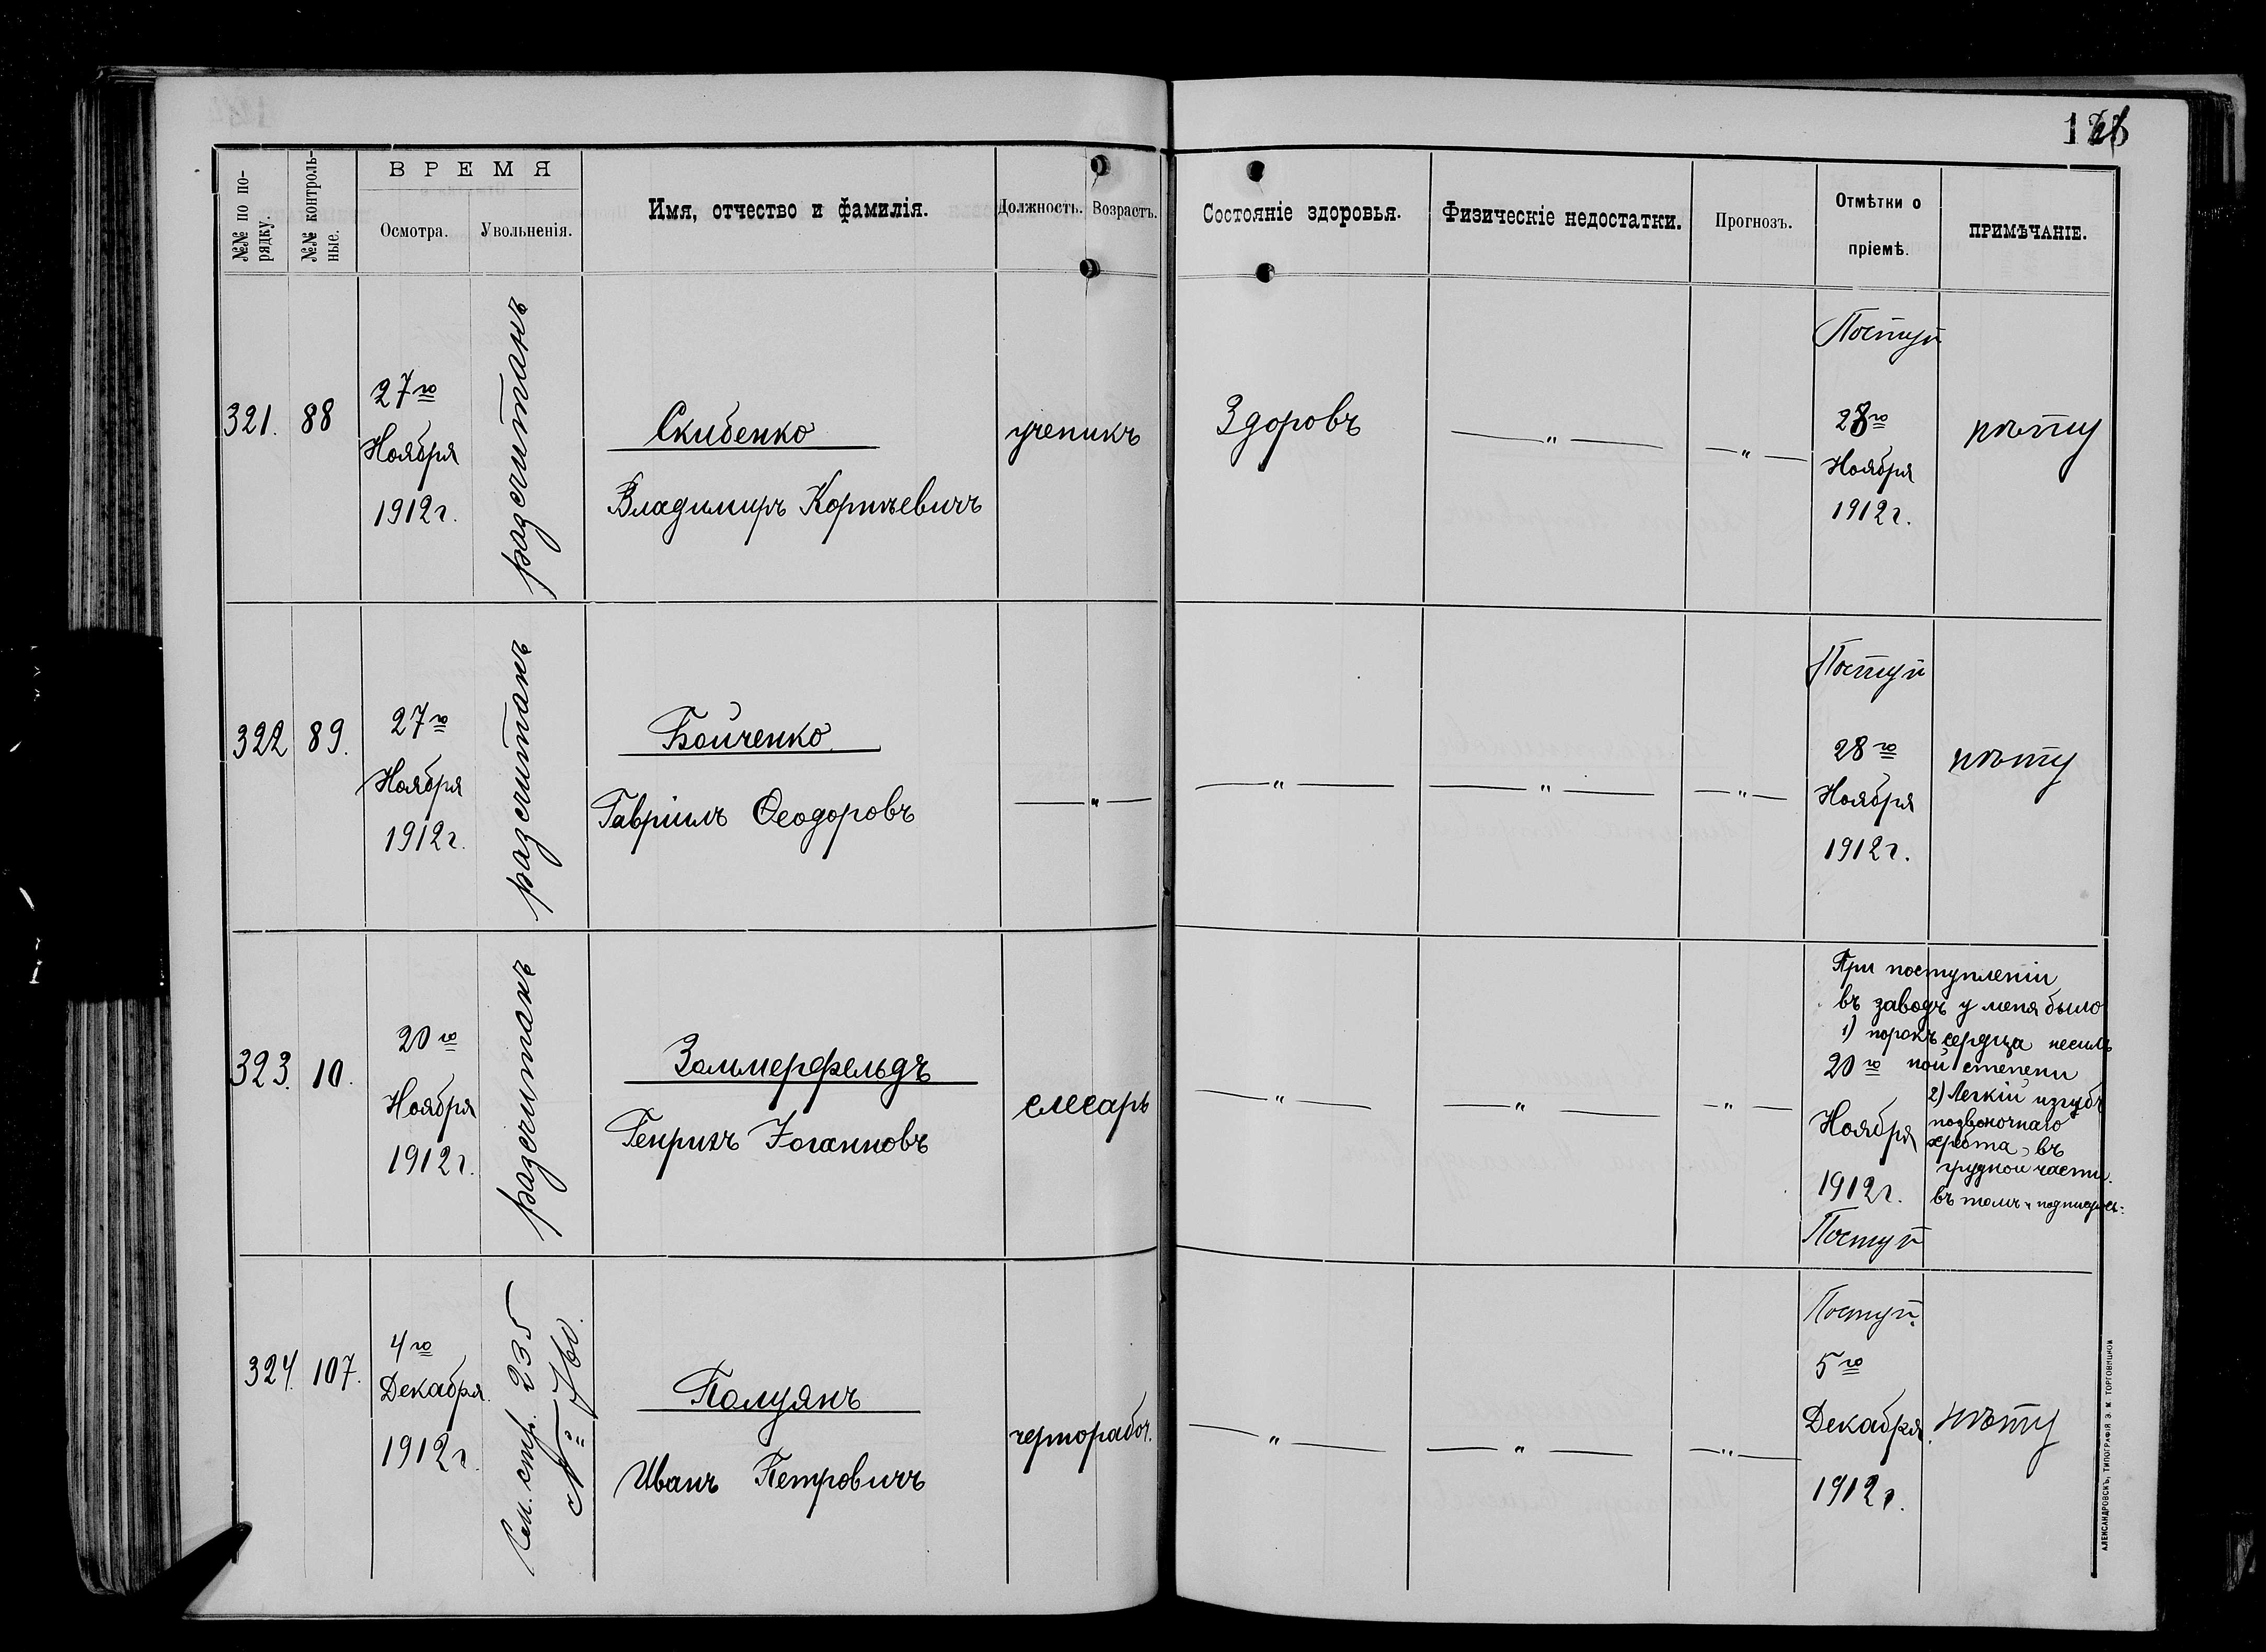 ВРЕМЯ
№№ по по-
рядку.
№№ контроль-
ные.
Осмотра.
Увольненія.
Имя, отчество и фамилія.
Должность.
Возрастъ.
Состояніе здоровья.
Физическіе недостатки.
Прогнозъ.
Отмѣтки о
пріемѣ.
ПРИМѢЧАНІЕ.
321.
88
27го
Ноября
1912 г.
разсчитанъ
Скибенко
Владимиръ Корнѣевичъ
ученикъ
Здоровъ
— " —
— " —
Поступ
28го
Ноября
1912 г.
нѣту
322
89.
27го
Ноября
1912 г.
разсчитанъ
Бойченко
Гавріилъ Ѳеодоровъ
— " —
— " —
— " —
— " —
Поступ
28го
Ноября
1912 г.
нѣту
323.
10.
20го
Ноября
1912 г.
разсчитанъ
Заммерфельдъ
Генрихъ Іоганновъ
слесарь
— " —
— " —
— " —
При поступленіи
въ заводъ у меня было
1) порокъ сердца несиль
ной степени
2) Легкій изгубъ
позвоночнаго
хребта, въ
грудной части.
въ томъ и подписуюсь.
20го
Ноября
1912 г.
Поступ
324.
107.
4го
Декабря
1912 г.
См. стр. 235
№ 760.
Полуянъ
Иванъ Петровичъ
чернорабоч.
— " —
— " —
— " —
Поступ.
5го
Декабря
1912 г.
нѣту
АЛЕКСАНДРОВСКЪ, ТИПОГРАФІЯ Э. М. ТОРГОВИЦКОЙ